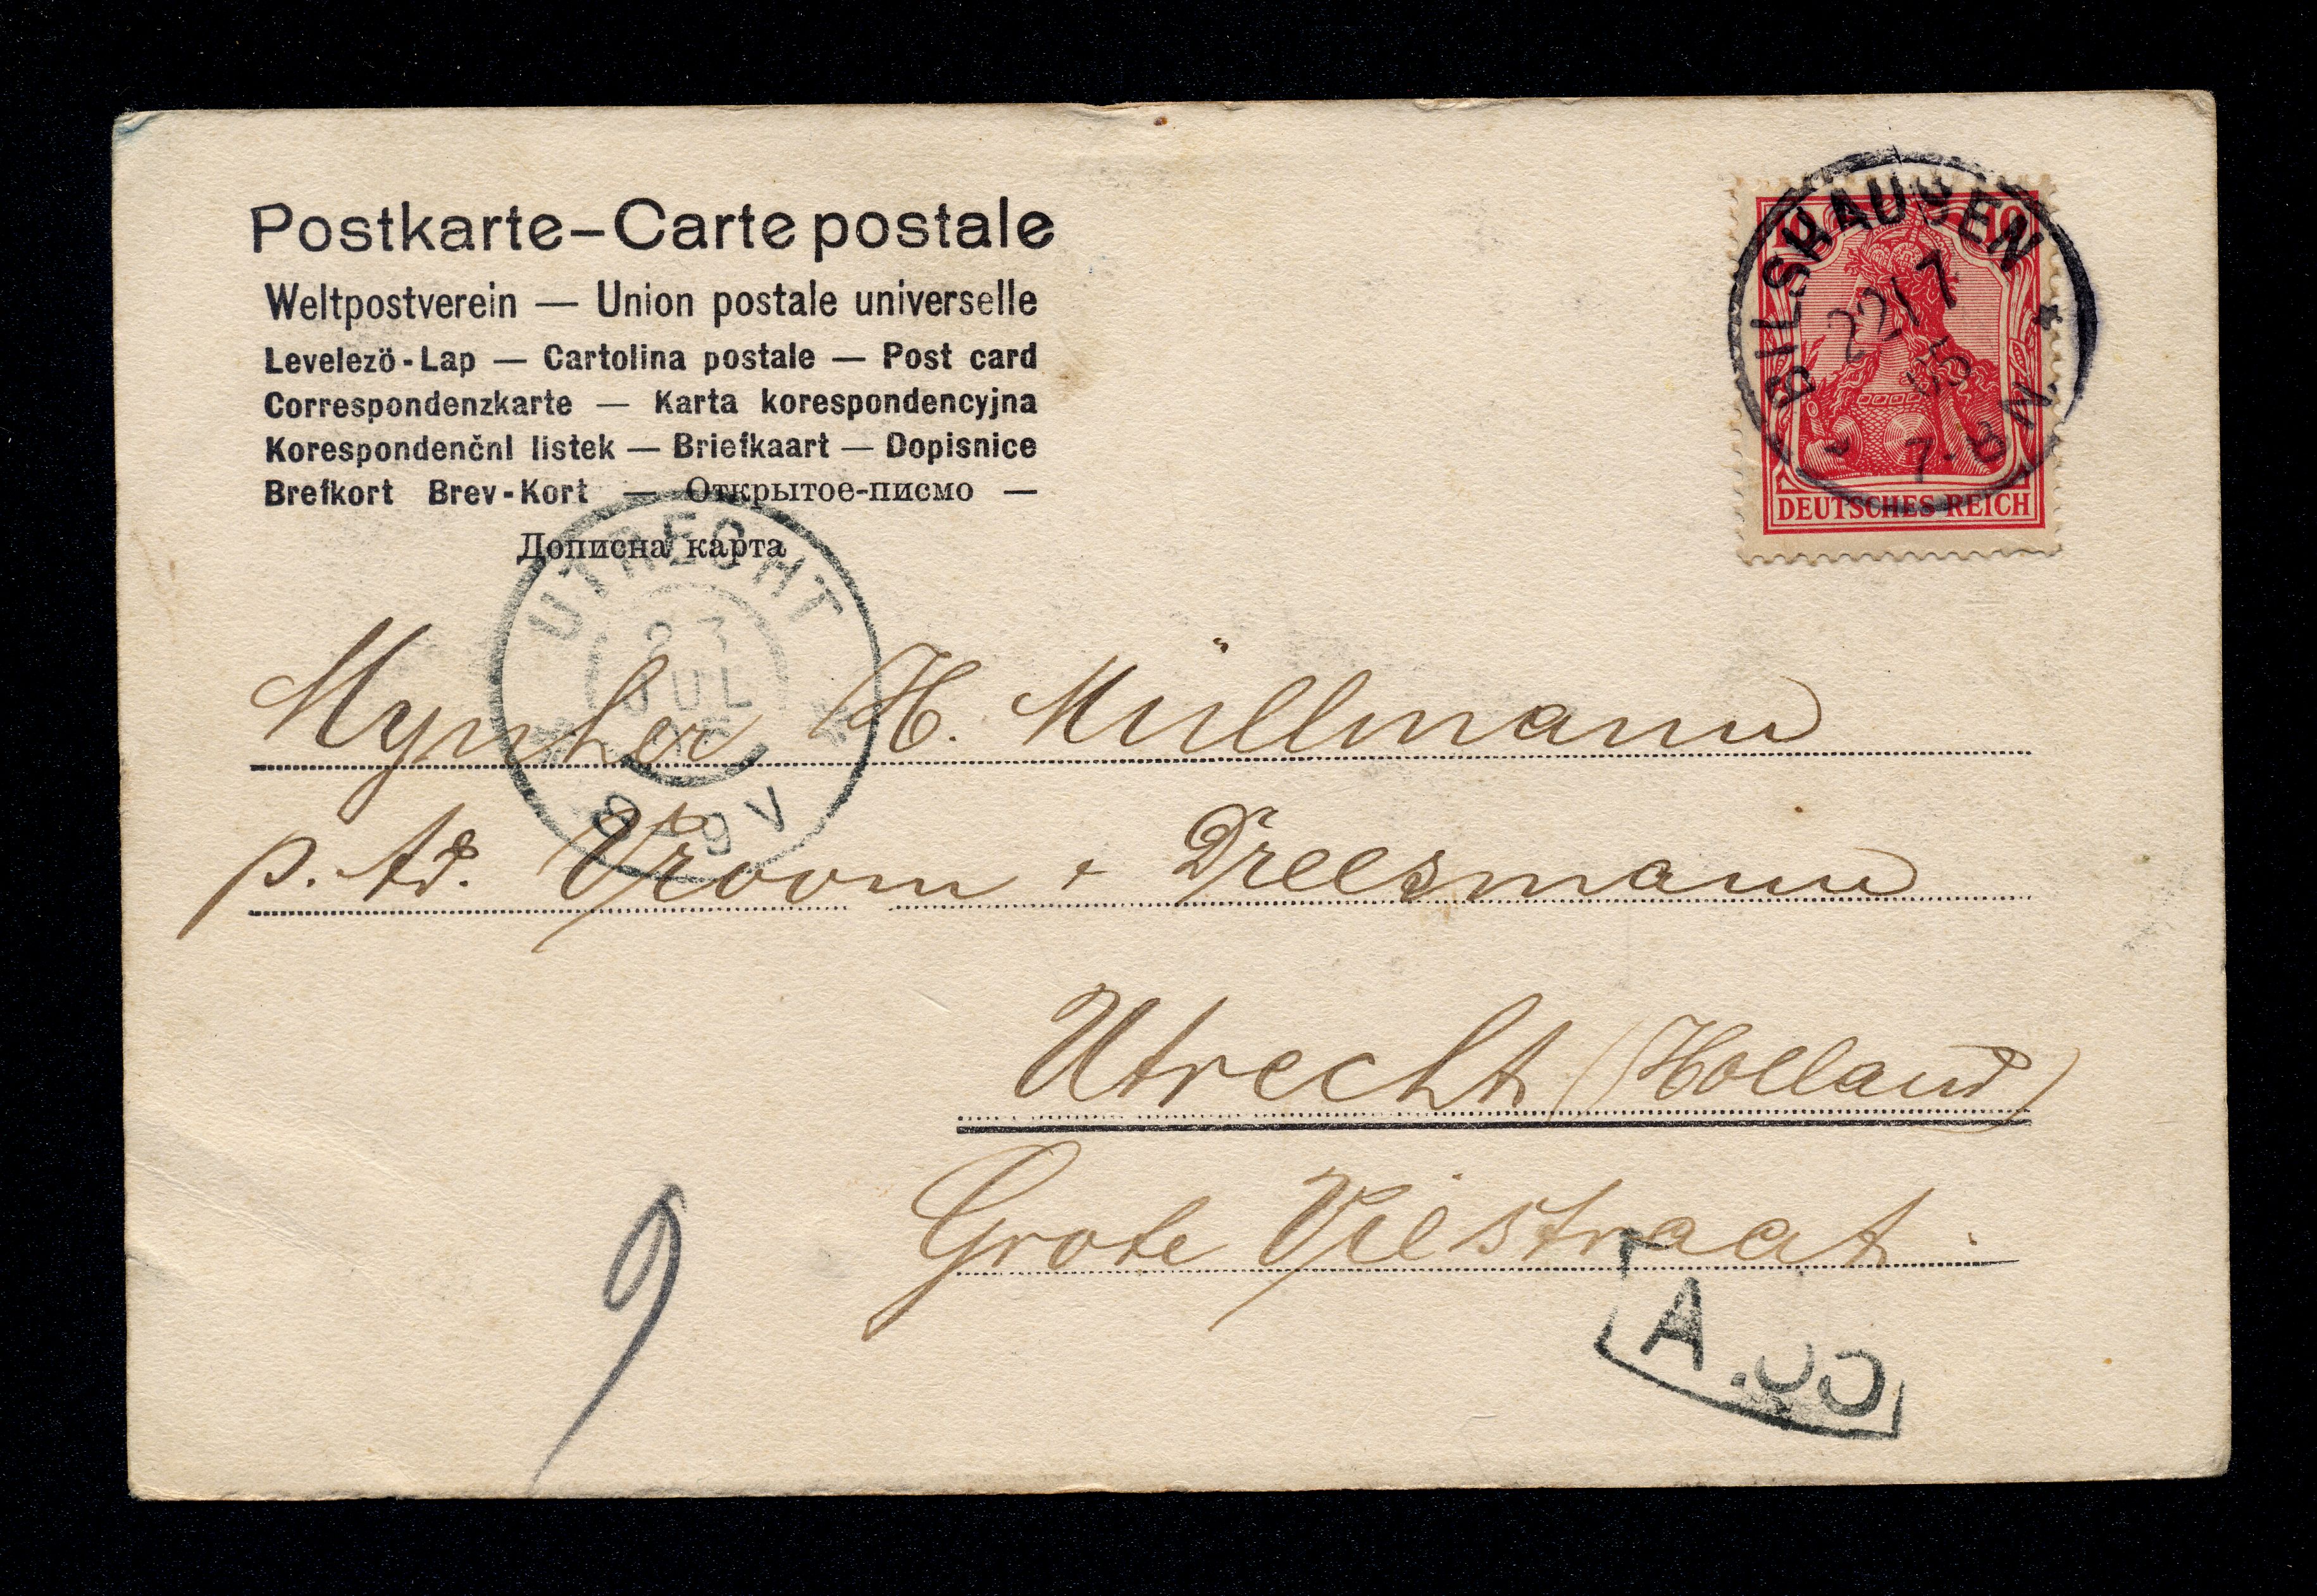 Postkarte – Carte postale
Weltpostverein — Union postale universelle
Levelezö-Lap — Cartolina postale — Post card
Correspondenzkarte — Karta korespondencyjna
Korespondenčnl listek — Briefkaart — Dopisnice
Brefkort Brev-Kort — Открытое-писмо —
Дописна карта
10 10
DEUTSCHES REICH
BILSHAUSEN
22/7
05
7-8N
UTRECHT
23
JUL
8-9V
Mynher H. Müllmann
p. Ad. Vroom + Dreesmann
Utrecht (Holland)
Grote Viestraat.
9
A.